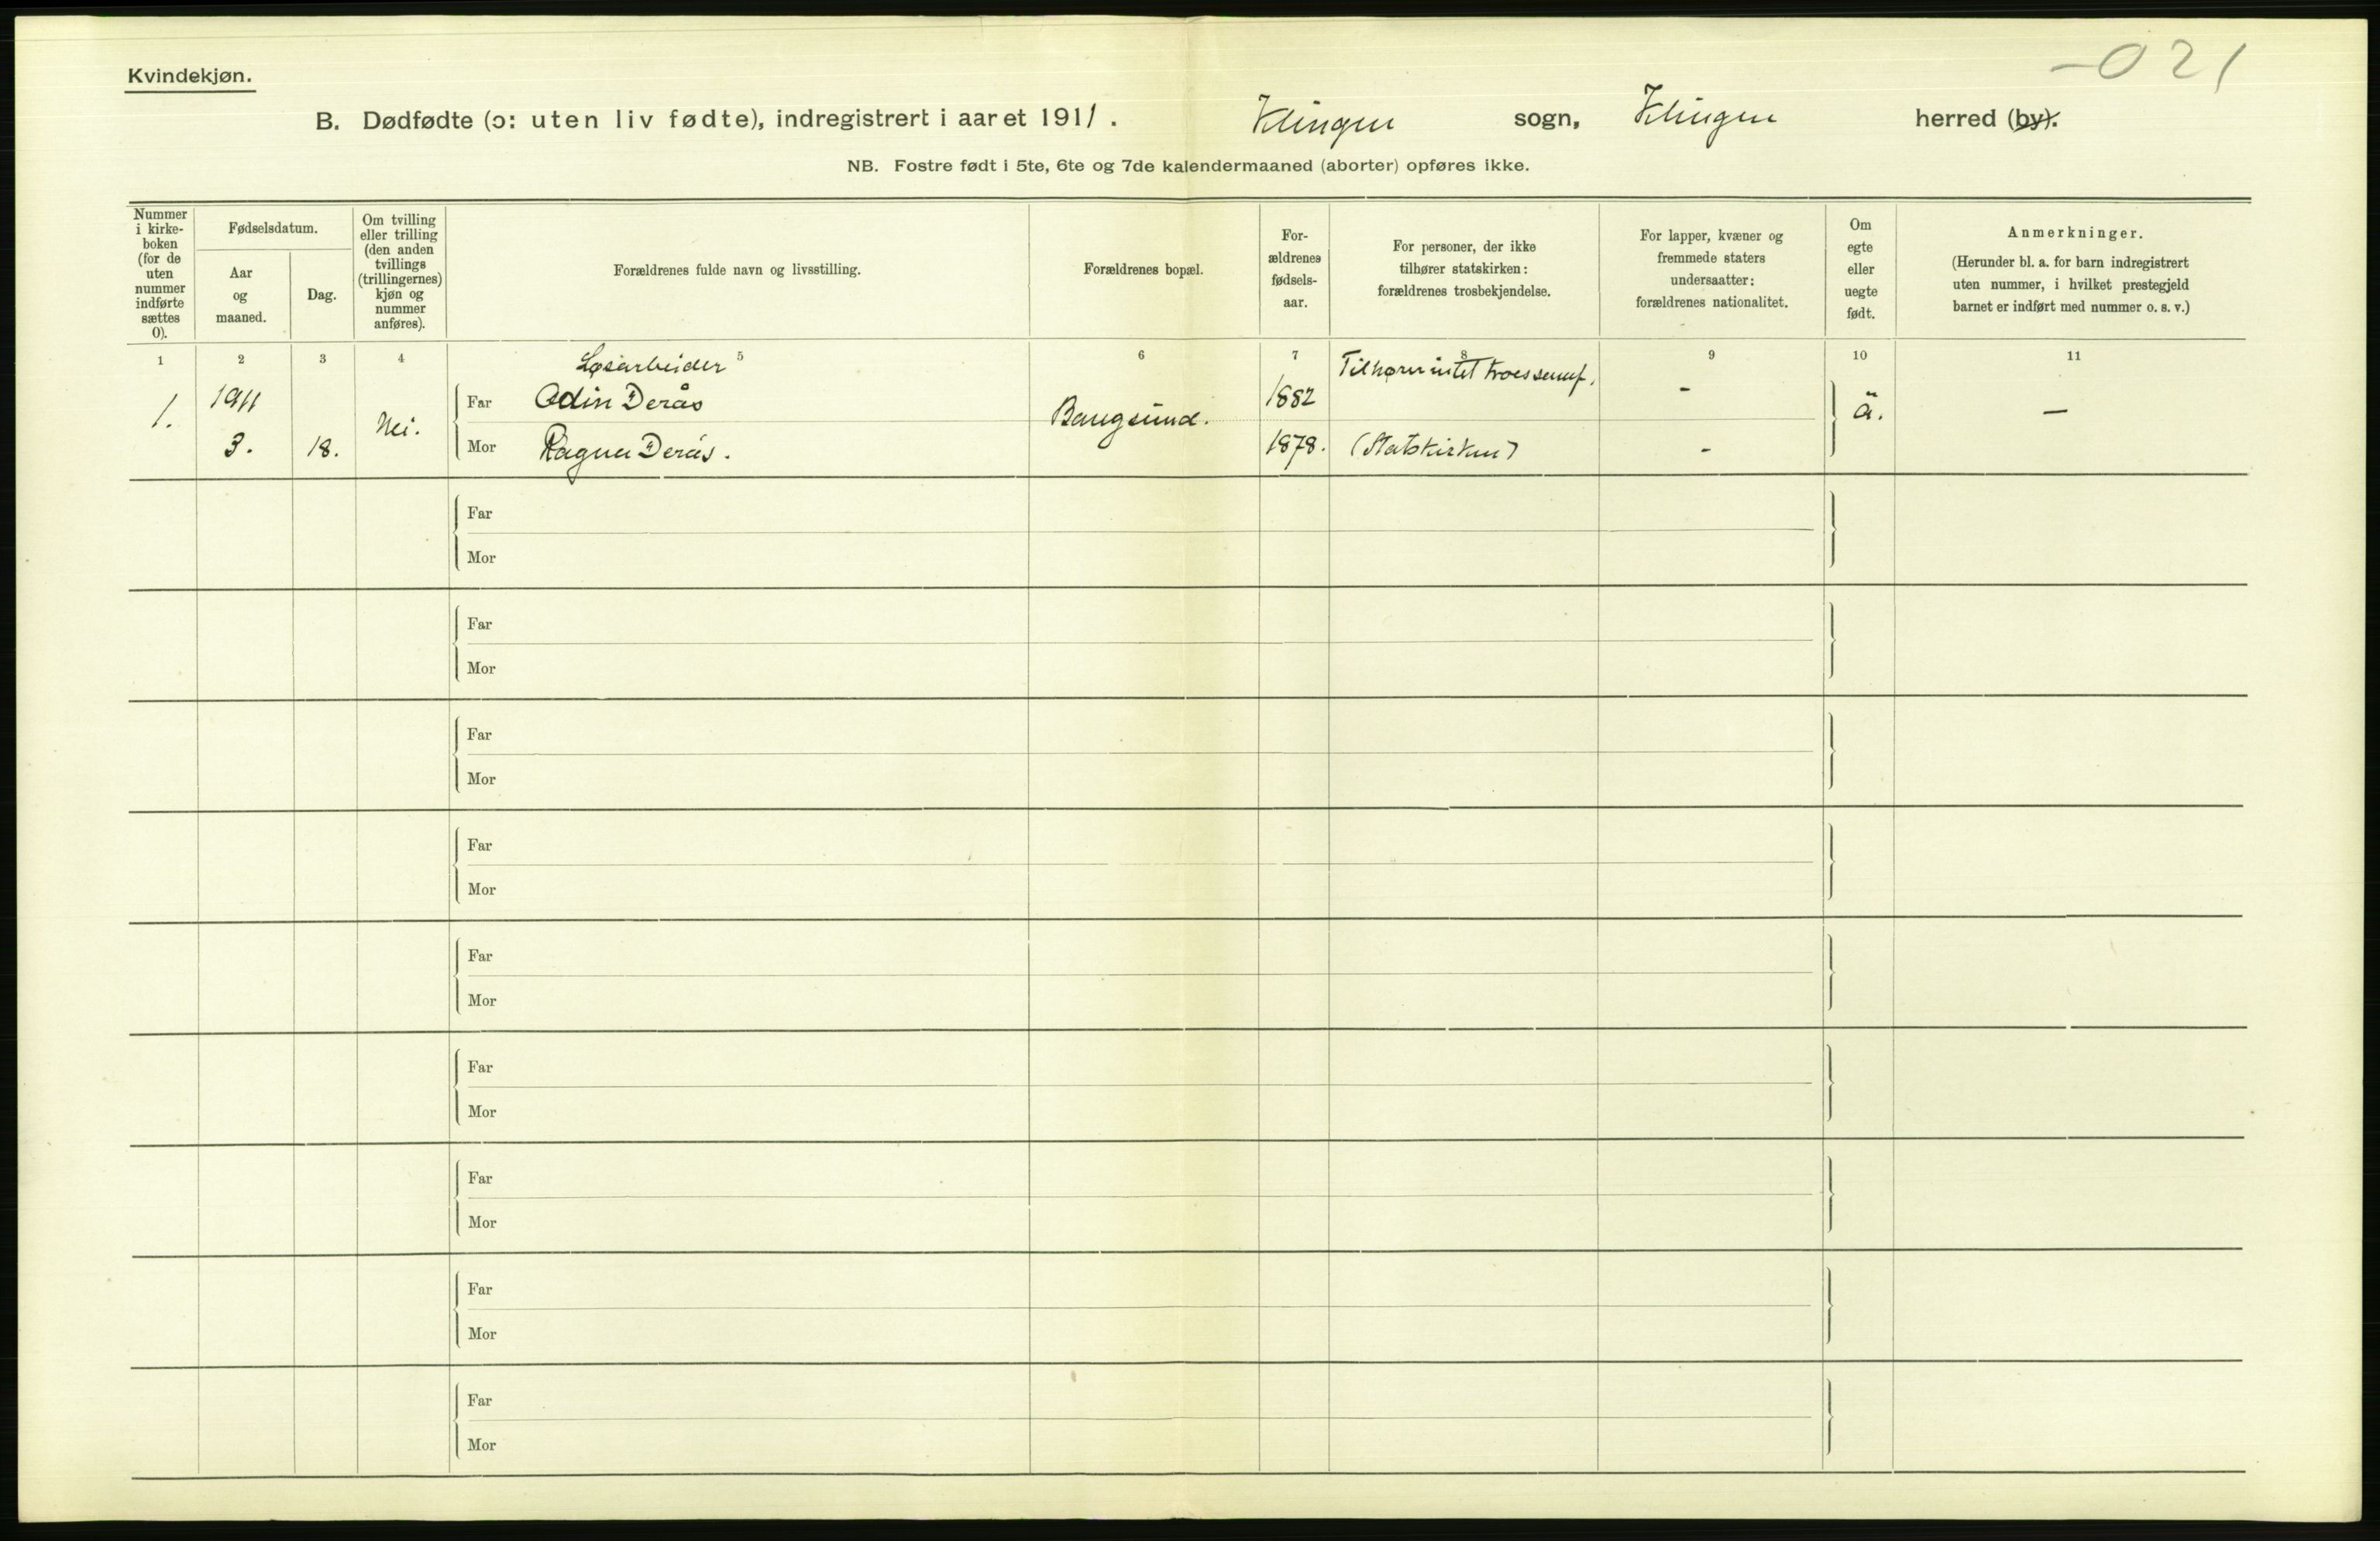 -021
Kvindekjøn.
B. Dødfødte (ɔ: uten liv fødte), indregistrert i aaret 1911. Klingen sogn, Klingen herred (by).
NB. Fostre født i 5te, 6te og 7de kalendermaaned (aborter) opføres ikke.
Nummer i kirke-boken (for de uten nummer indførte sættes 0).
Fødselsdatum.
Aar og maaned.
Dag.
Om tvilling eller trilling (den anden tvillings (trillingernes) kjøn og nummer anføres).
Forældrenes fulde navn og livsstilling.
Forældrenes bopæl.
For-ældrenes fødsels-aar.
For personer, der ikke tilhører statskirken: forældrenes trosbekjendelse.
For lapper, kvæner og fremmede staters undersaatter: forældrenes nationalitet.
Om egte eller uegte født.
Anmerkninger.
(Herunder bl. a. for barn indregistrert uten nummer, i hvilket prestegjeld barnet er indført med nummer o. s. v.)
1 2 3 4 5 6 7 8 9 10 11
Løsarbeider Tilhører intet troessamf.
1. 1911 Far Odin Derås 1882 -
Nei. Bangsund. ä. —
3. 18. Mor Ragna Derås. 1878. (Statskirken) -
Far
Mor
Far
Mor
Far
Mor
Far
Mor
Far
Mor
Far
Mor
Far
Mor
Far
Mor
Far
Mor